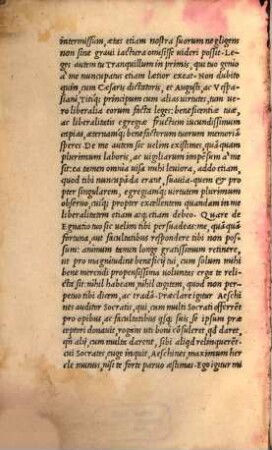 intermissum, ætas etiam nostra suorum negligens
non sine gravi iactura omisisse videri possit. Le-
ges autem tu Tranquillum in primis, qui tuo genio
a me nuncupatus etiam lætior exeat. Non dubito
quin cum Cæsaris dictatoris, et Augusti, ac Vespa-
siani Titiq; principum cum alias virtutes, tum ve-
ro liberalia eorum facta leges: beneficentiæ tuæ,
ac liberalitatis egregiæ fructum iucundissimum
capias, æternamq; benefactorum tuorum memoriā
speres. De me autem sic velim existimes, quod quam
plurimum laboris, ac vigiliarum impensum a me
sit: ea tamen omnia visa mihi leviora, addo etiam,
quod tibi nuncupāda erant, suavia. quem et pro-
pter singularem, egregiamq; virtutem plurimum
observo, cuiq; propter excellentem quandam in me
liberalitatem etiam atq; etiam debeo. Quare de
Egnatio tuo sic velim tibi persuadeas: me, quā quā
fortuna, aut facultatibus respondere tibi non pos-
sum: animum tamen longe gratissimum retinere,
et pro magnitudine beneficij tui, cum solum mihi
bene merendi propensissima voluntas erga te reli-
cta sit: nihil habeam, nihil cogitem, quod non per-
petuo tibi dicem, ac tradā. Præclare igitur Aeschi-
nes auditor Socratis, qui, cum multi Socrati offerrēt
pro opibus, ac facultatibus q̄sq; suis, se ipsum præ-
ceptori donavit, rogans uti boni cōsuleret, qd daret,
qn̄ alij, cum multa darent, sibi aliqd relinquerēt:
cui Socrates, euge inquit, Aeschines, maximum her-
cle munus, nisi te forte parvo æstimas. Ego igitur mi